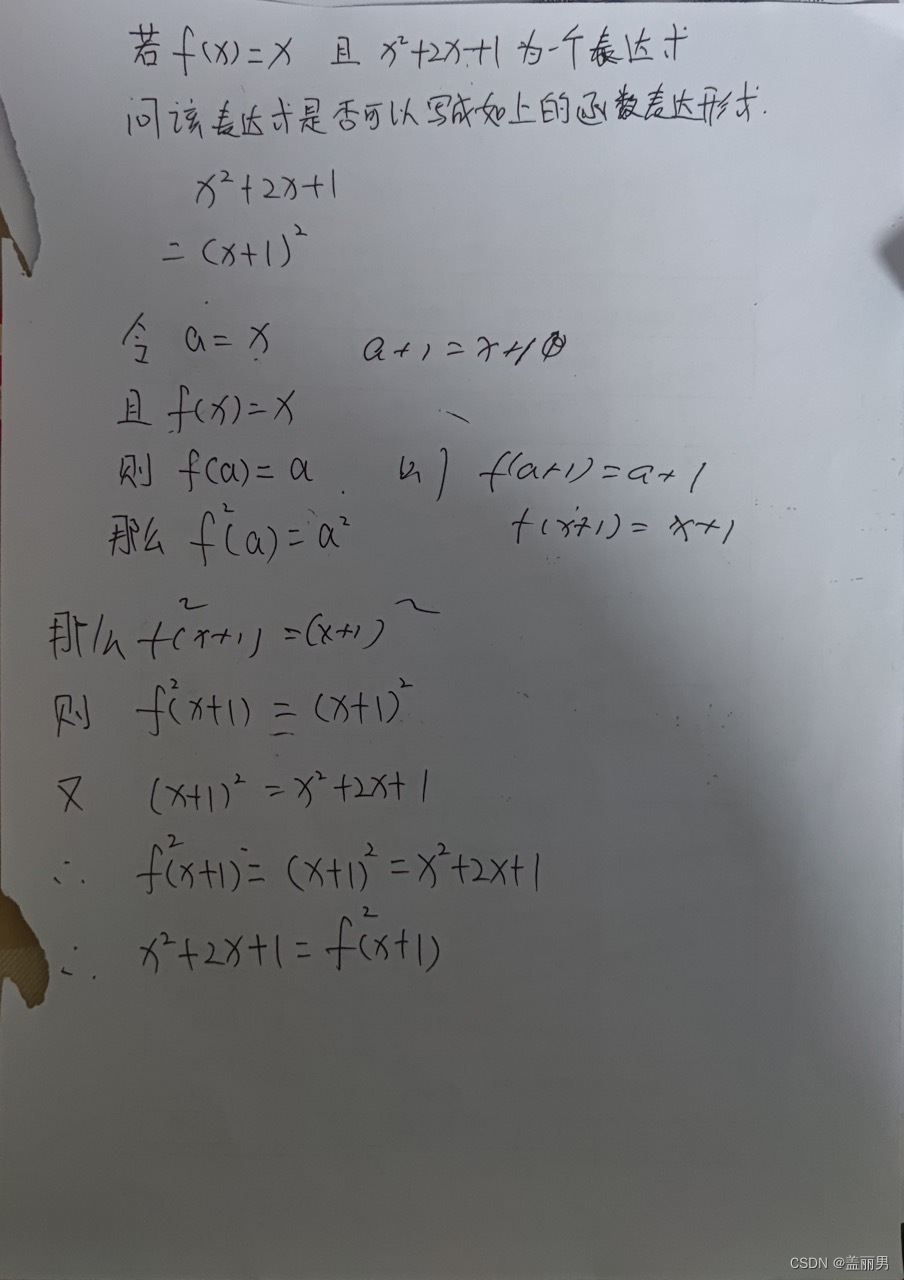 若 f(x)=x 且 x²+2x+1 为一个表达式
问该表达式是否可以写成如上的函数表达形式.
x²+2x+1
=(x+1)²
令 a=x a+1=x+1
且 f(x)=x
则 f(a)=a. 则 f(a+1)=a+1
那么 f²(a)=a² f(x+1)=x+1
那么 f²(x+1)=(x+1)²
则 f²(x+1)=(x+1)²
又 (x+1)²=x²+2x+1
∴ f²(x+1)=(x+1)²=x²+2x+1
∴ x²+2x+1=f²(x+1)
CSDN @盖丽男